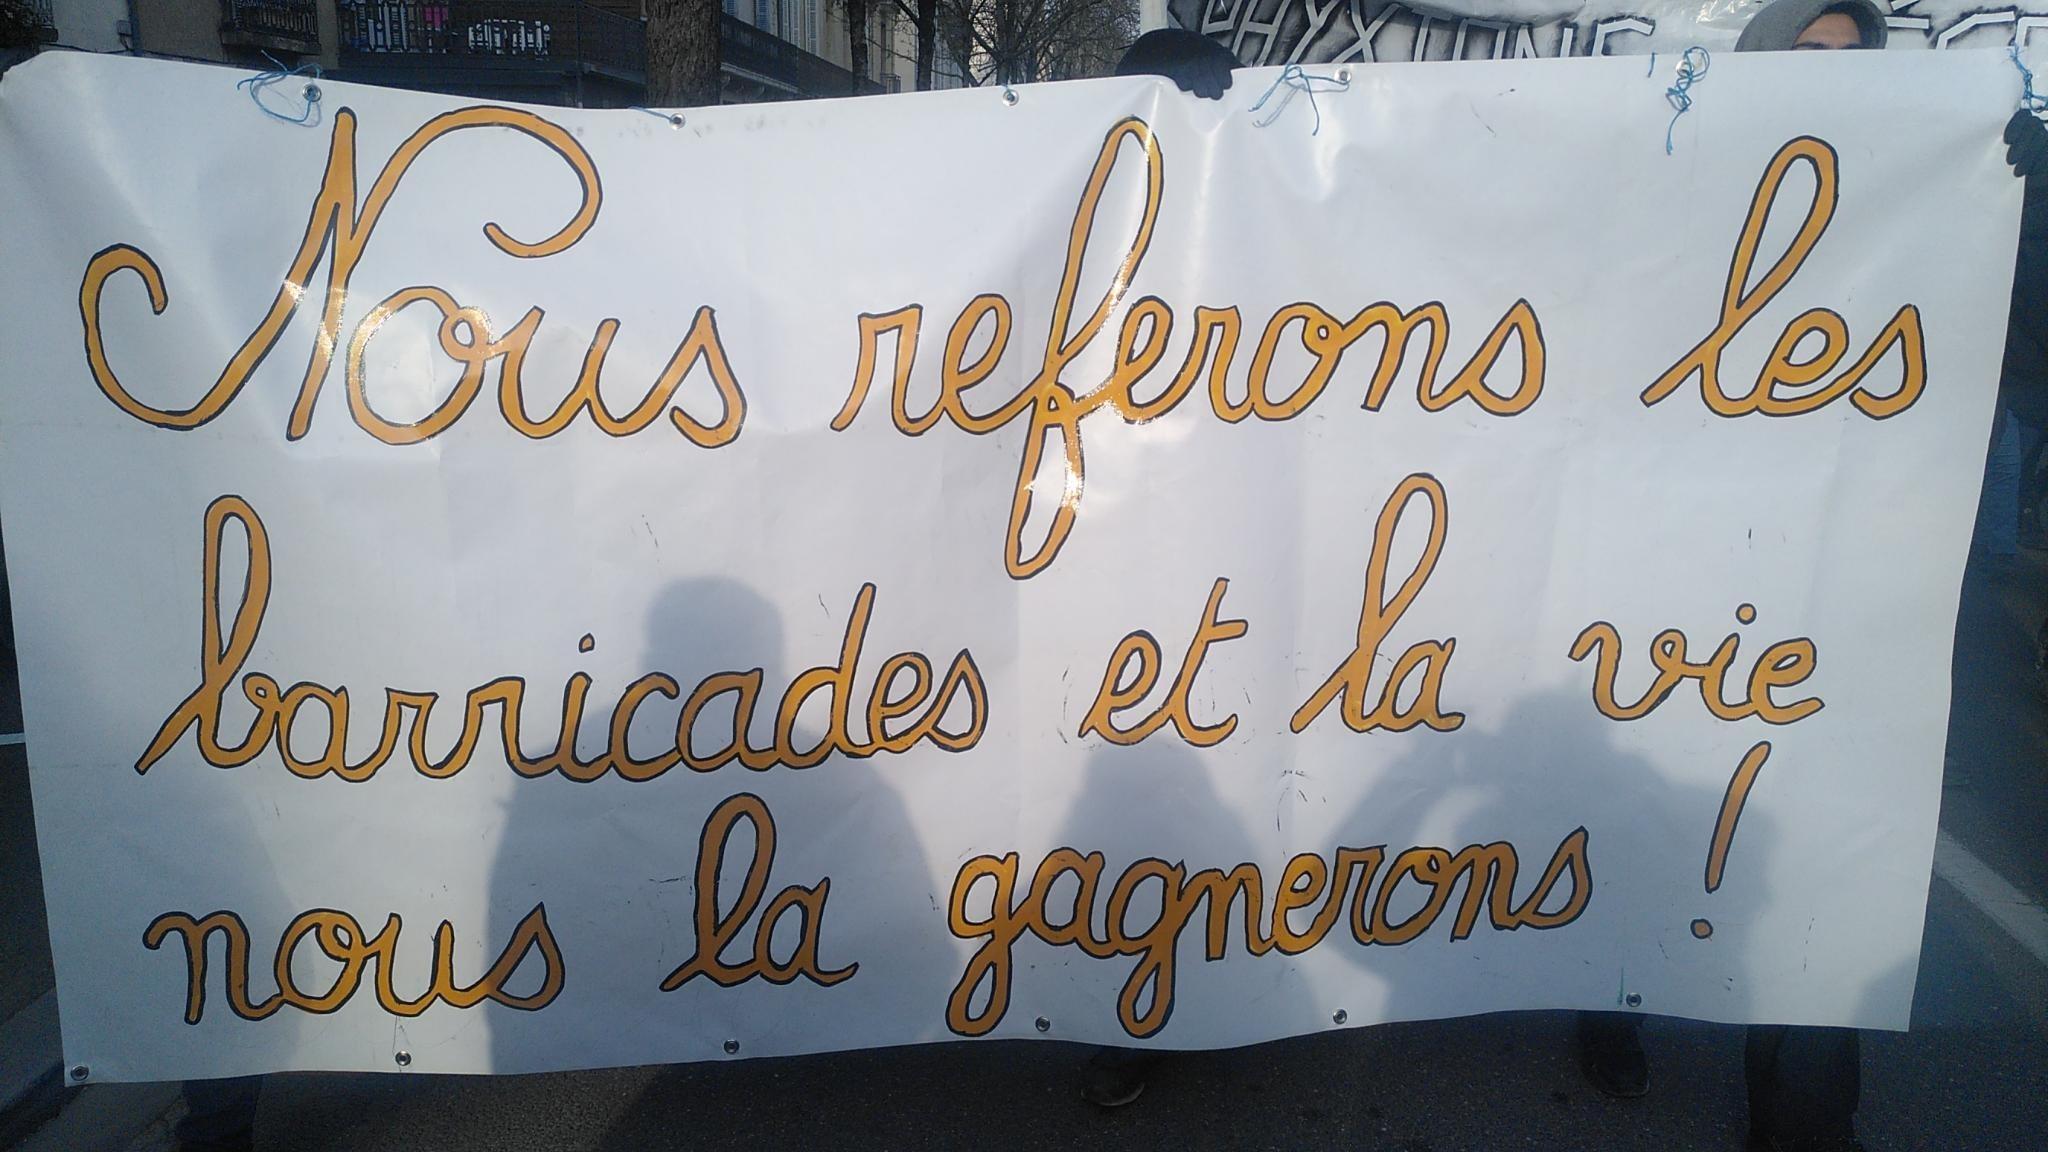 PHYXIONS
Nous referons les
barricades et la vie
nous la gagnerons !